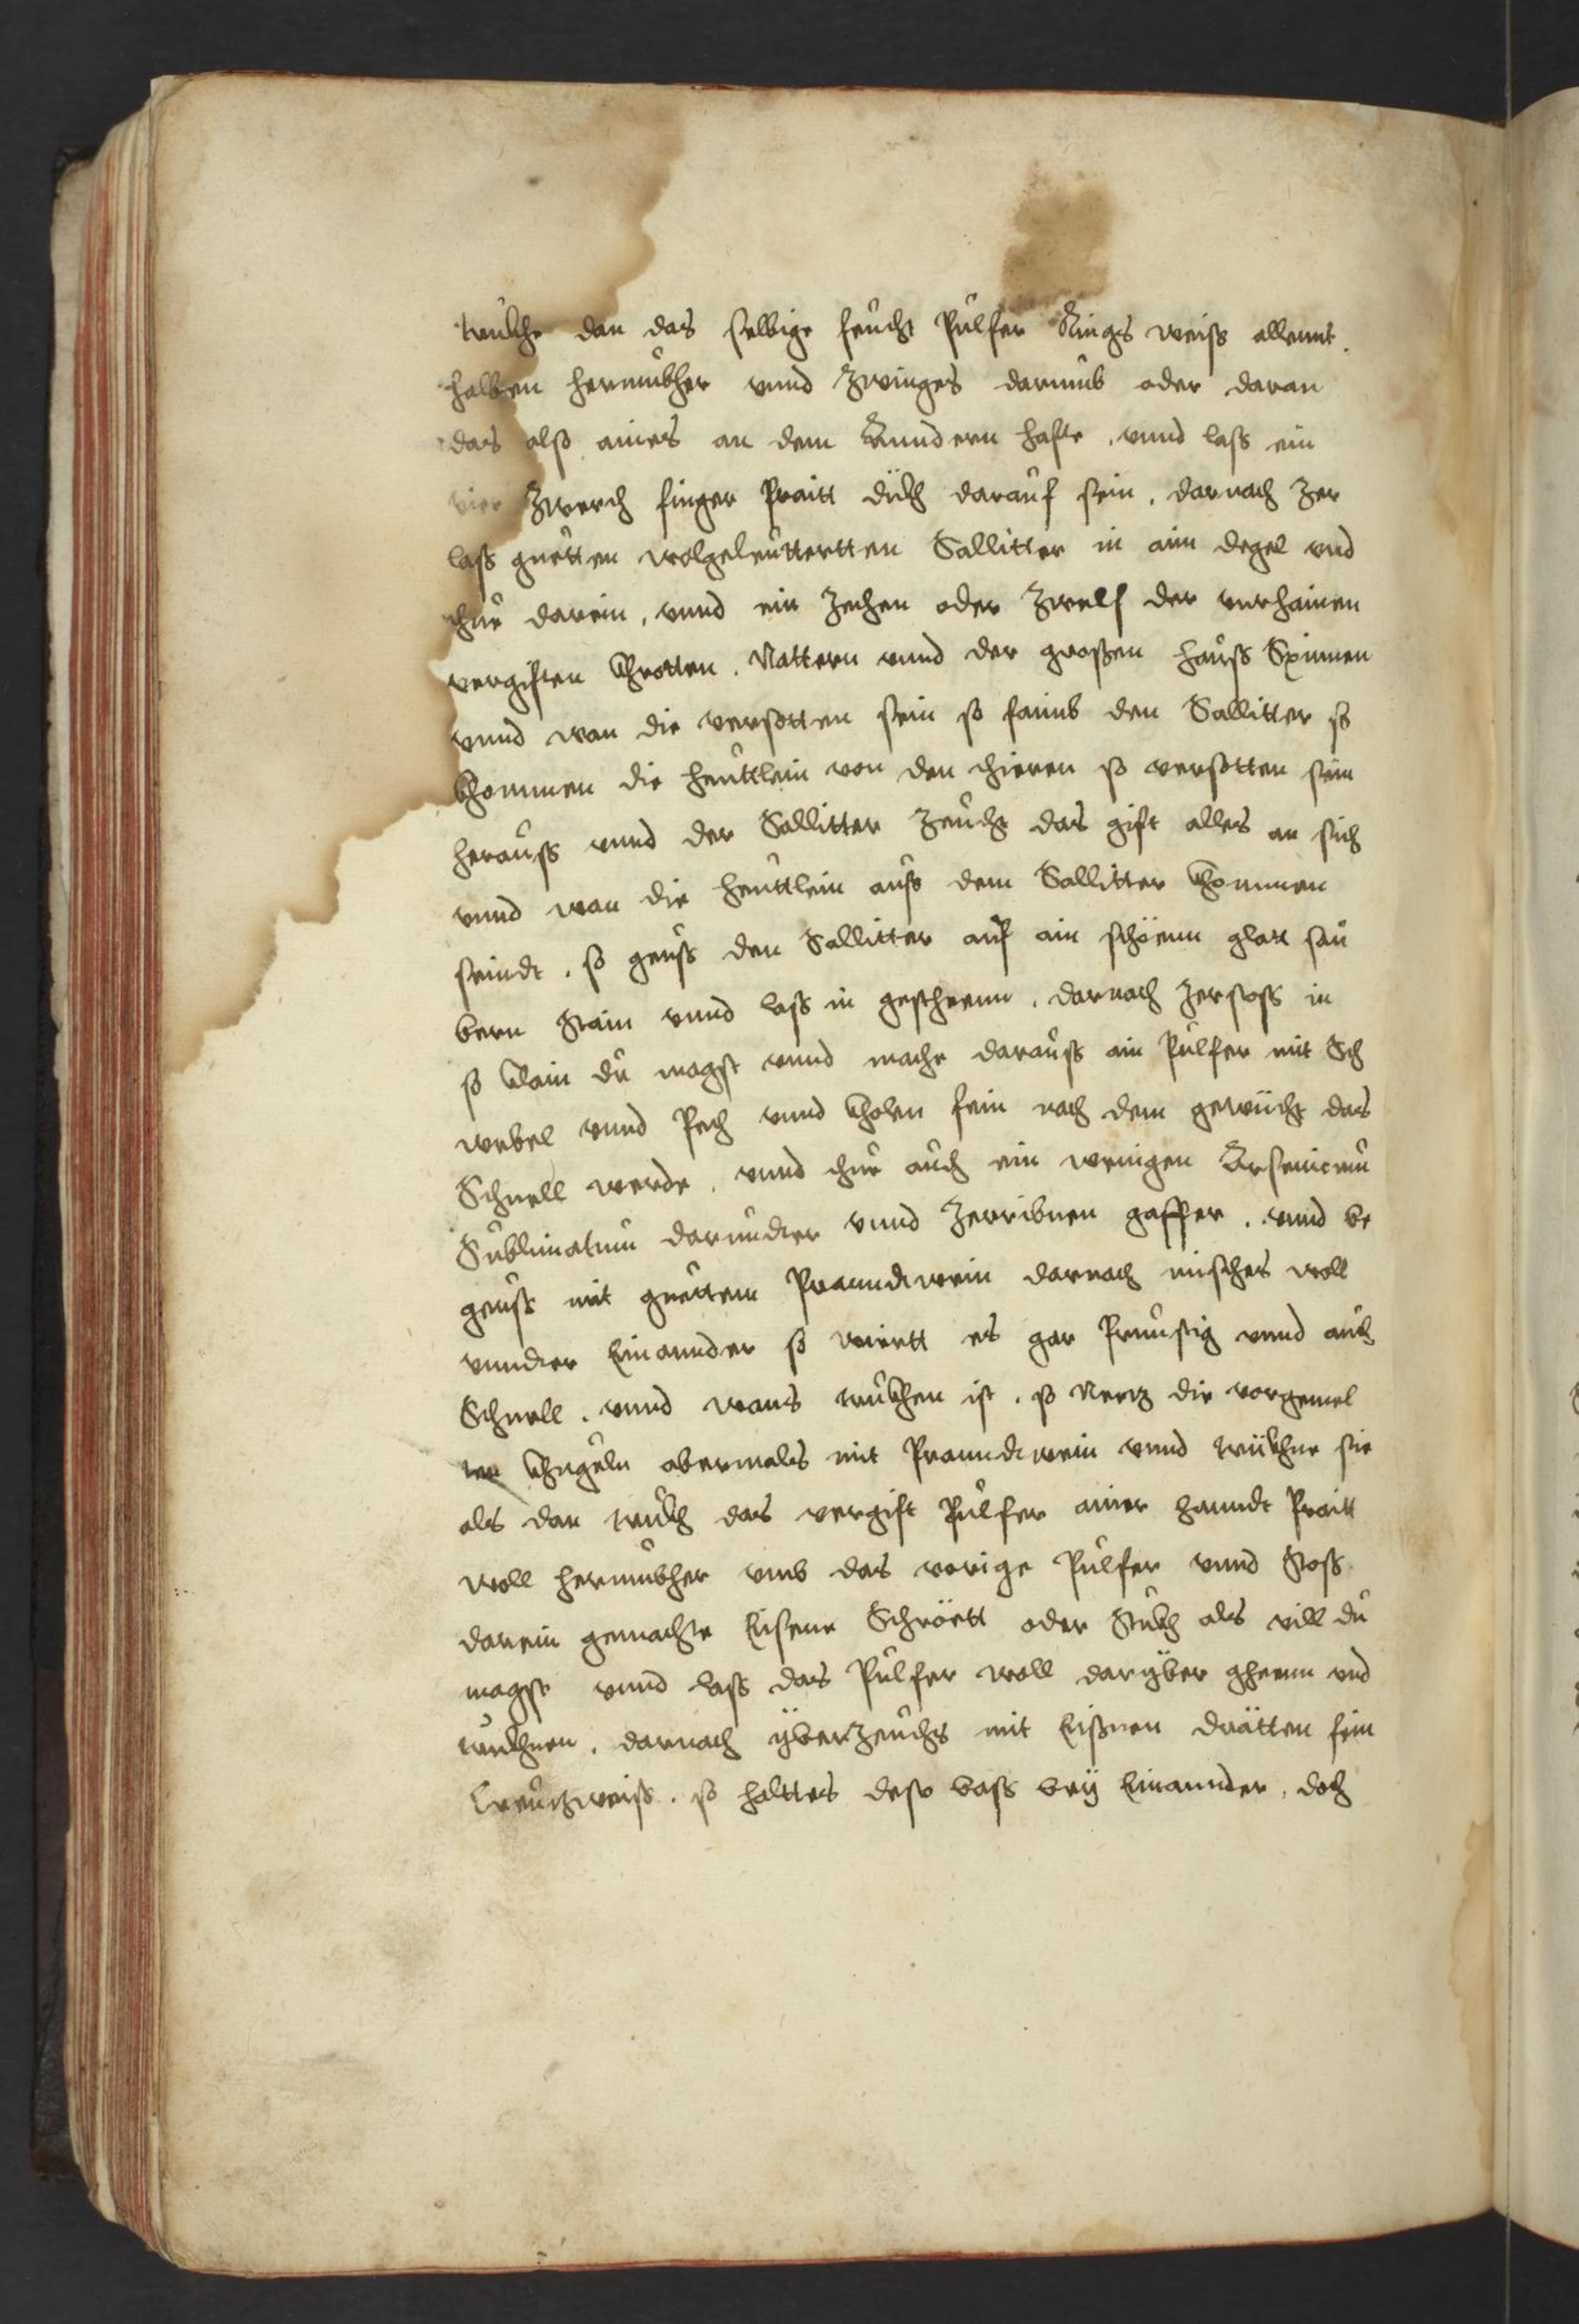 trückhe dan das selbige feücht Pülfer Rings weiss allennt.
halben herumbher vnnd Zwinges darumb oder daran
das also aines an dem Anndern hafte, vnnd lass ein
vier Zwerch finger Praitt dickh daraüf sein, darnach Zer
lass guetten wolgeleüttertten Sallitter in aim degel vnd
thue darein, vnnd ein Zechen oder Zwelf der vnrhainen
vergiften Khrotten. Nattern vnnd der grossen hauss Spinnen
vnnd wan die versotten sein so faimb den Sallitter so
khommen die heüttlein von den thieren so versotten sein
herauss vnnd der Sallitter Zeücht das gift alles an sich
vnnd wan die heüttlein auss dem Sallitter khommen
seindt. so geüss den Sallitter auf ain schöenn glatt sau
bern Stain vnnd lass in gestheenn. darnach Zerstoss in
so klain du magst vnnd mache darauss ain Pulfer mit Sch
webel vnnd Pech vnnd kholen fein nach dem gewicht das
Schnell werde. vnnd thue auch ein wenigen Arsenicum
Sublimatum darundter vnnd Zerribnen gaffer. vnnd be
geüss mit guettem Pranndtwein darnach misches woll
vnndter Einannder so wiertt es gar Prünstig vnnd auch
Schnell. vnnd wans truckhen ist. so Netz die vorgemel
ten khugeln abermals mit Pranndtwein vnnd trückhne sie
als dan truckh das vergift Pülfer ainer hanndt Praitt
woll herumbher vmb das vorige Pülfer vnnd Stoss
darein gemachte Eisene Schröett oder Stückh als vill du
magst vnnd lass das Pülfer woll daryber gheenn vnd
trückhnen. darnach yberzeüchs mit Eissnen drätten fein
Creützweiss. so haltts desto bass bey Einannder, doch